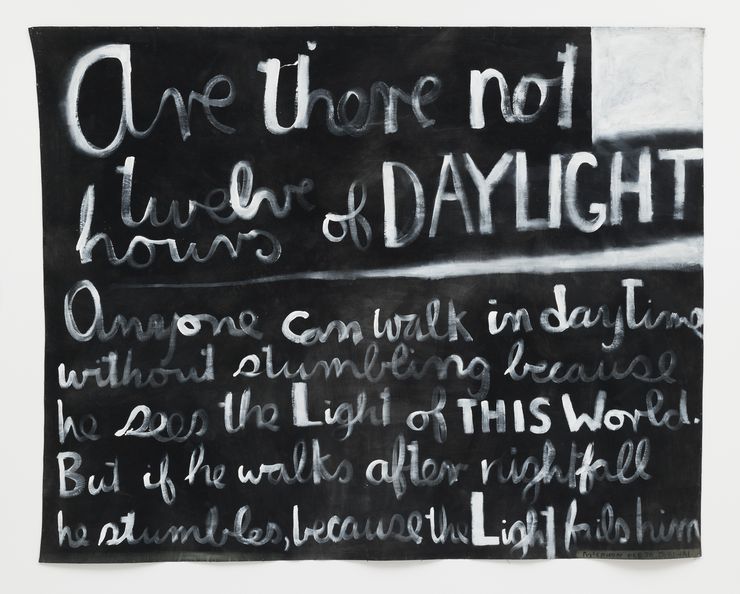 Are there not
twelve
hours of DAYLIGHT
Anyone can walk in daytime
without stumbling because
he sees the Light of THIS World.
But if he walks after nightfall
he stumbles, because the Light fails him
McCAHON